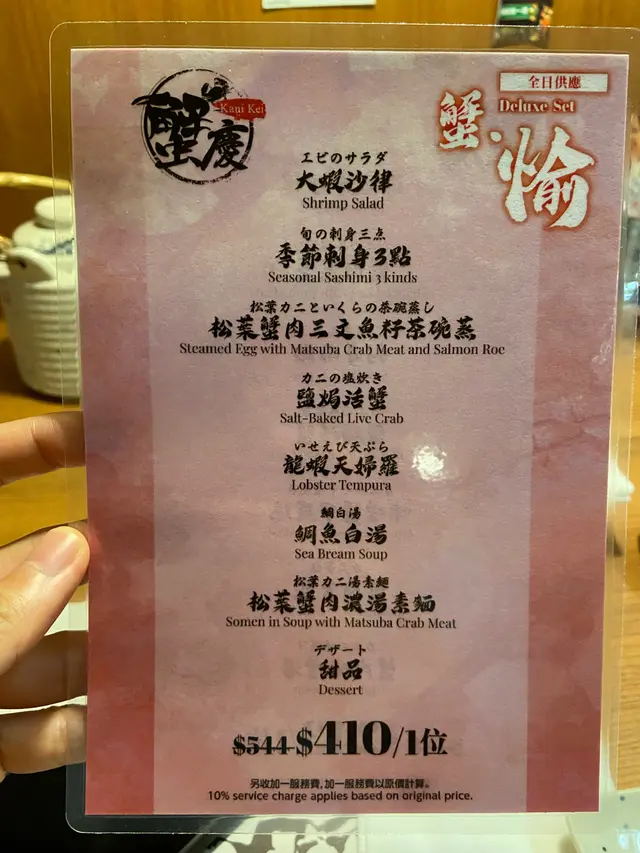 蟹慶
Kani Kei
全日供應
Deluxe Set
蟹・愉
エビのサラダ
大蝦沙律
Shrimp Salad
旬の刺身三点
季節刺身3點
Seasonal Sashimi 3 kinds
松葉カニといくらの茶碗蒸し
松葉蟹肉三文魚籽茶碗蒸
Steamed Egg with Matsuba Crab Meat and Salmon Roe
カニの塩炊き
鹽焗活蟹
Salt-Baked Live Crab
いせえび天ぷら
龍蝦天婦羅
Lobster Tempura
鯛白湯
鯛魚白湯
Sea Bream Soup
松葉カニ湯素麺
松葉蟹肉濃湯素麵
Somen in Soup with Matsuba Crab Meat
デザート
甜品
Dessert
$544 $410/1位
另收加一服務費,加一服務費以原價計算。
10% service charge applies based on original price.